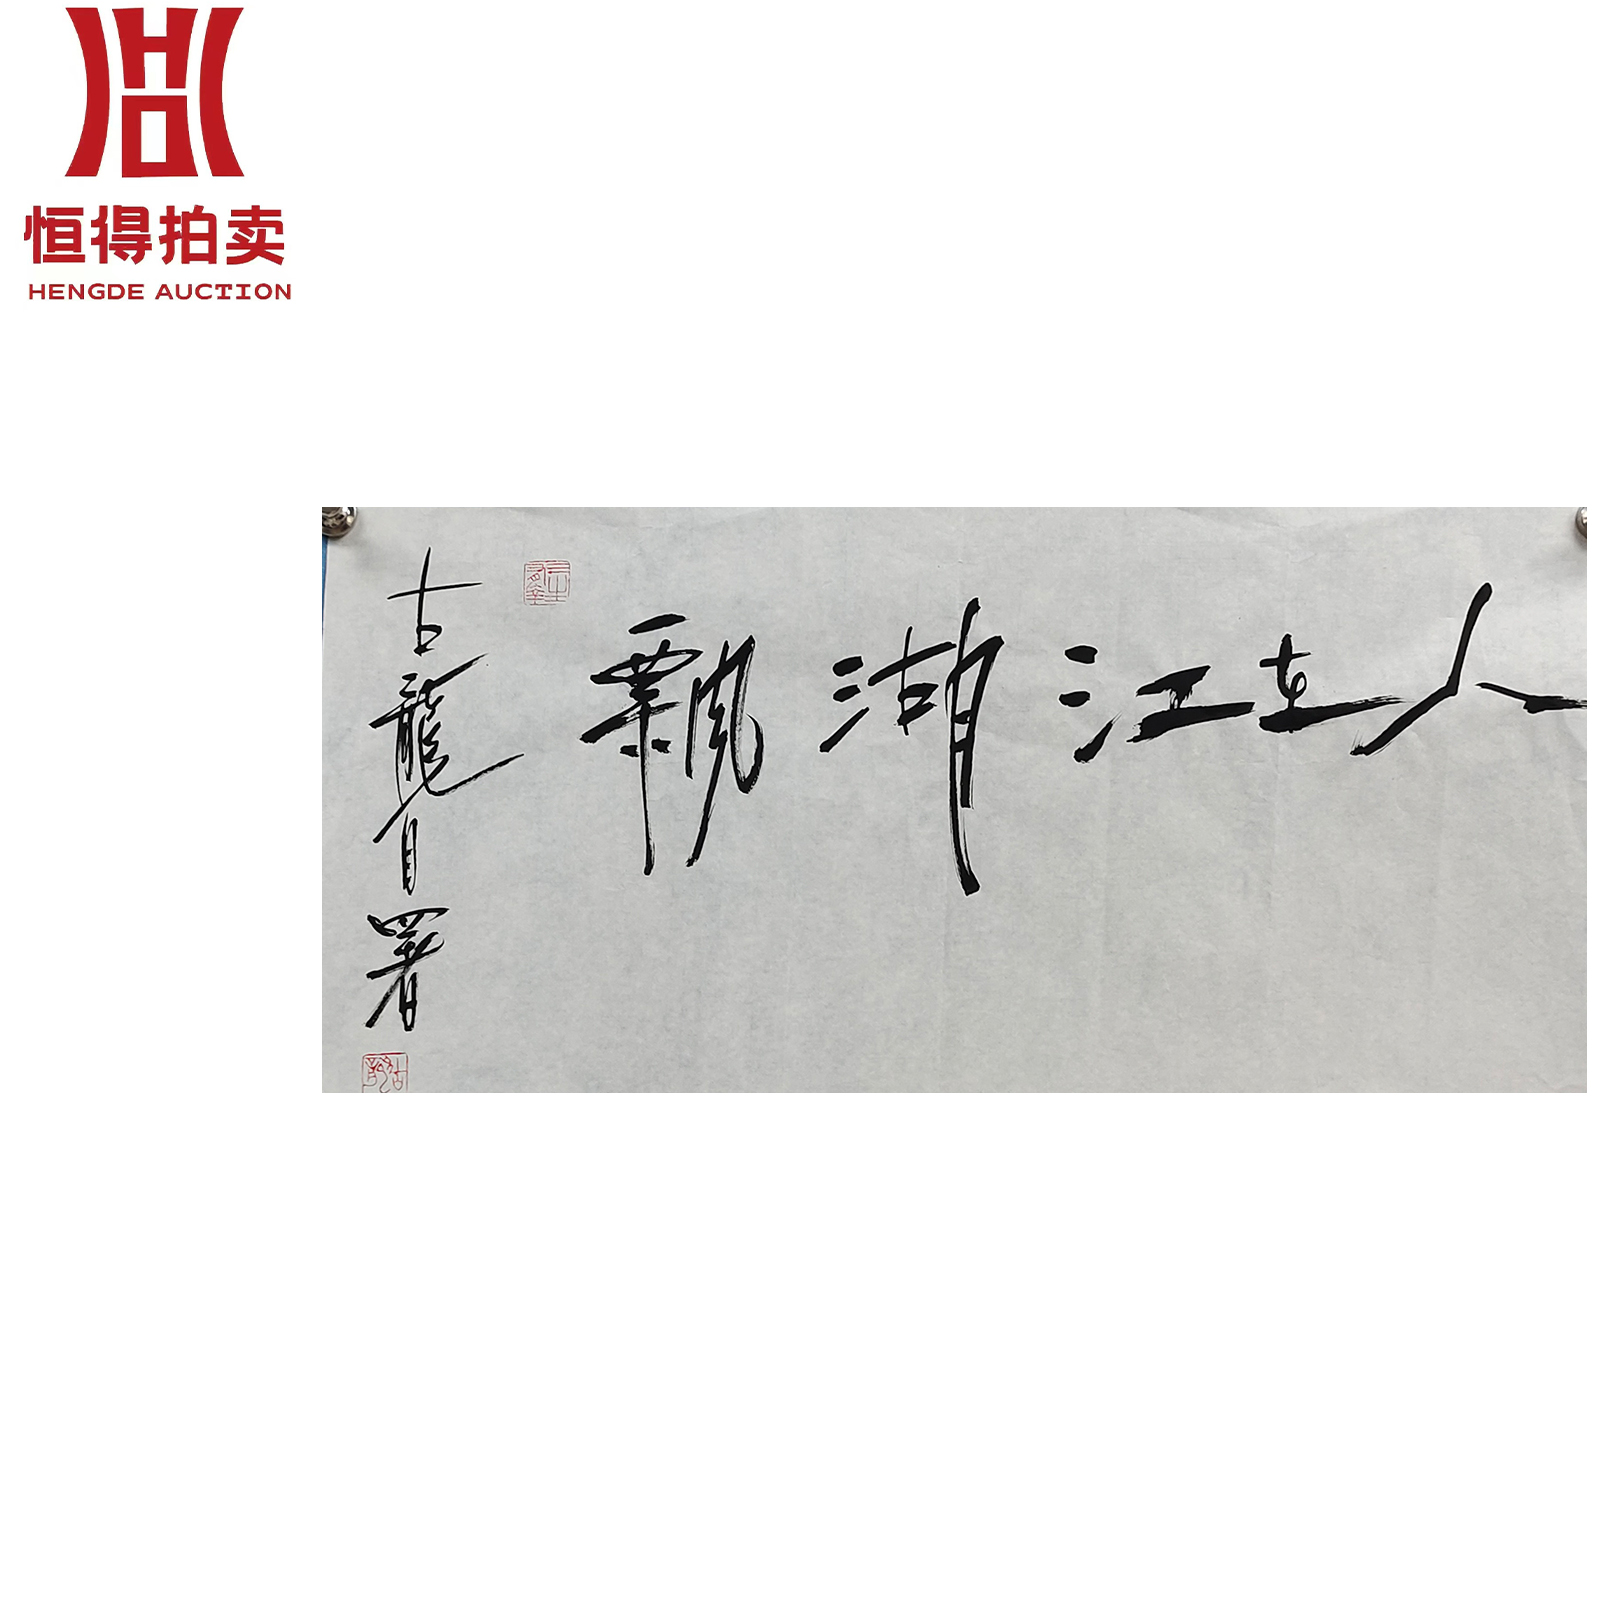 恒得拍卖
HENGDE AUCTION
人在江湖飘
古龍自署